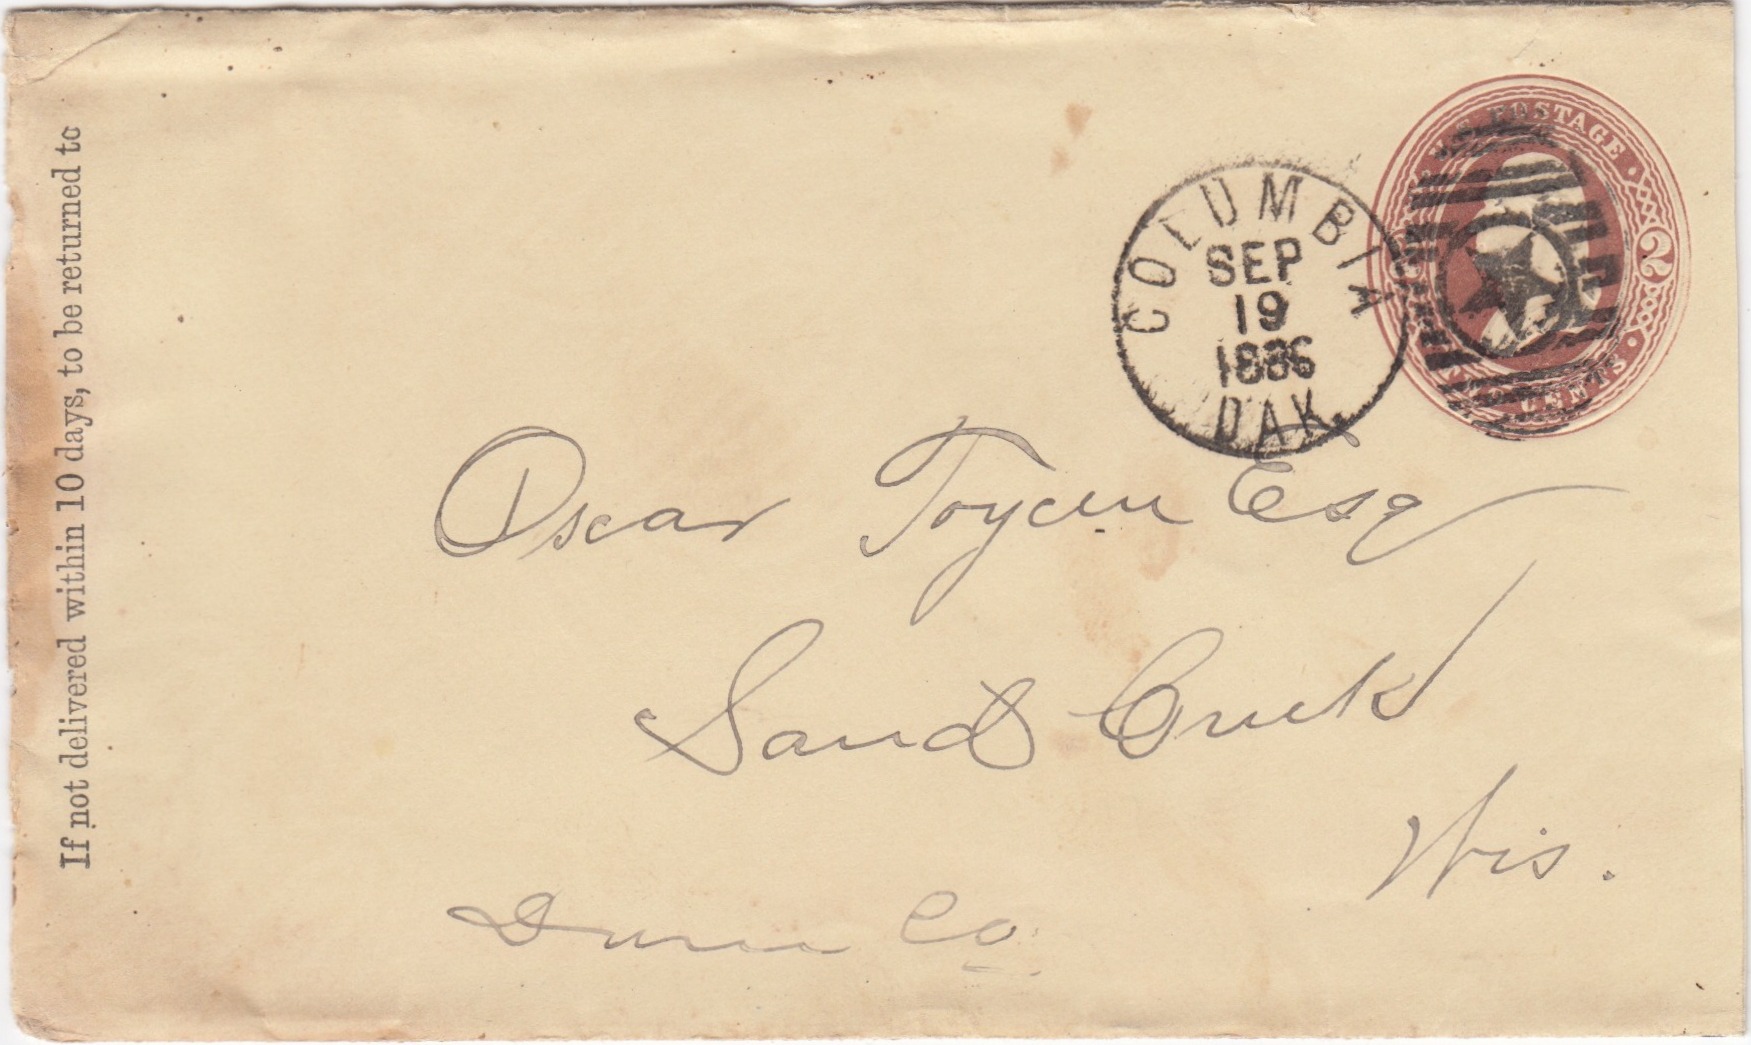 If not delivered within 10 days, to be returned to
COLUMBIA
SEP
19
1886
DAK.
U.S. POSTAGE
2
CENTS
Oscar Toycen Esq
Sand Creek
Wis.
Dunn Co.